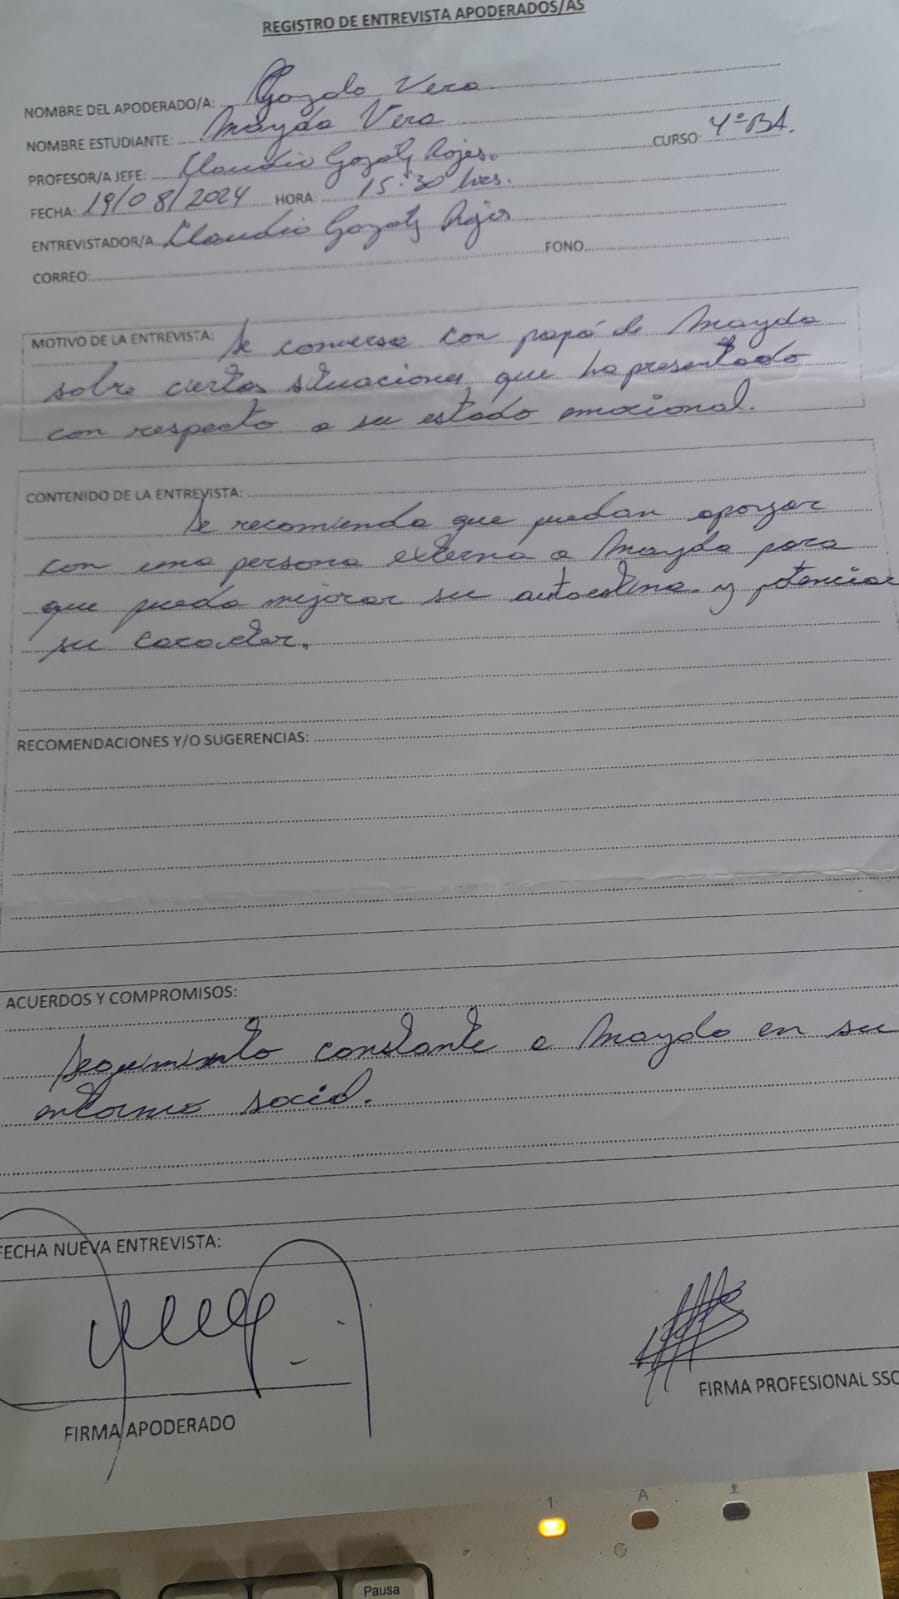 REGISTRO DE ENTREVISTA APODERADOS/AS
NOMBRE DEL APODERADO/A: Gozalo Vera
NOMBRE ESTUDIANTE: Mayda Vera CURSO: 4º BA.
PROFESOR/A JEFE: Claudio Rojas.
FECHA: 19/08/2024 HORA: 15:30 hrs.
ENTREVISTADOR/A Claudio Rojas
CORREO: FONO
MOTIVO DE LA ENTREVISTA: Se conversa con papá de Mayda
sobre ciertas situaciones que ha presentado
con respecto a su estado emocional.
CONTENIDO DE LA ENTREVISTA:
Se recomienda que puedan apoyar
con una persona externa a Mayda para
que pueda mejorar su autoestima y potenciar
su caracter.
RECOMENDACIONES Y/O SUGERENCIAS:
ACUERDOS Y COMPROMISOS:
Seguimiento constante a Mayda en su
entorno social.
FECHA NUEVA ENTREVISTA:
FIRMA APODERADO
FIRMA PROFESIONAL SSC
1 A
Pausa